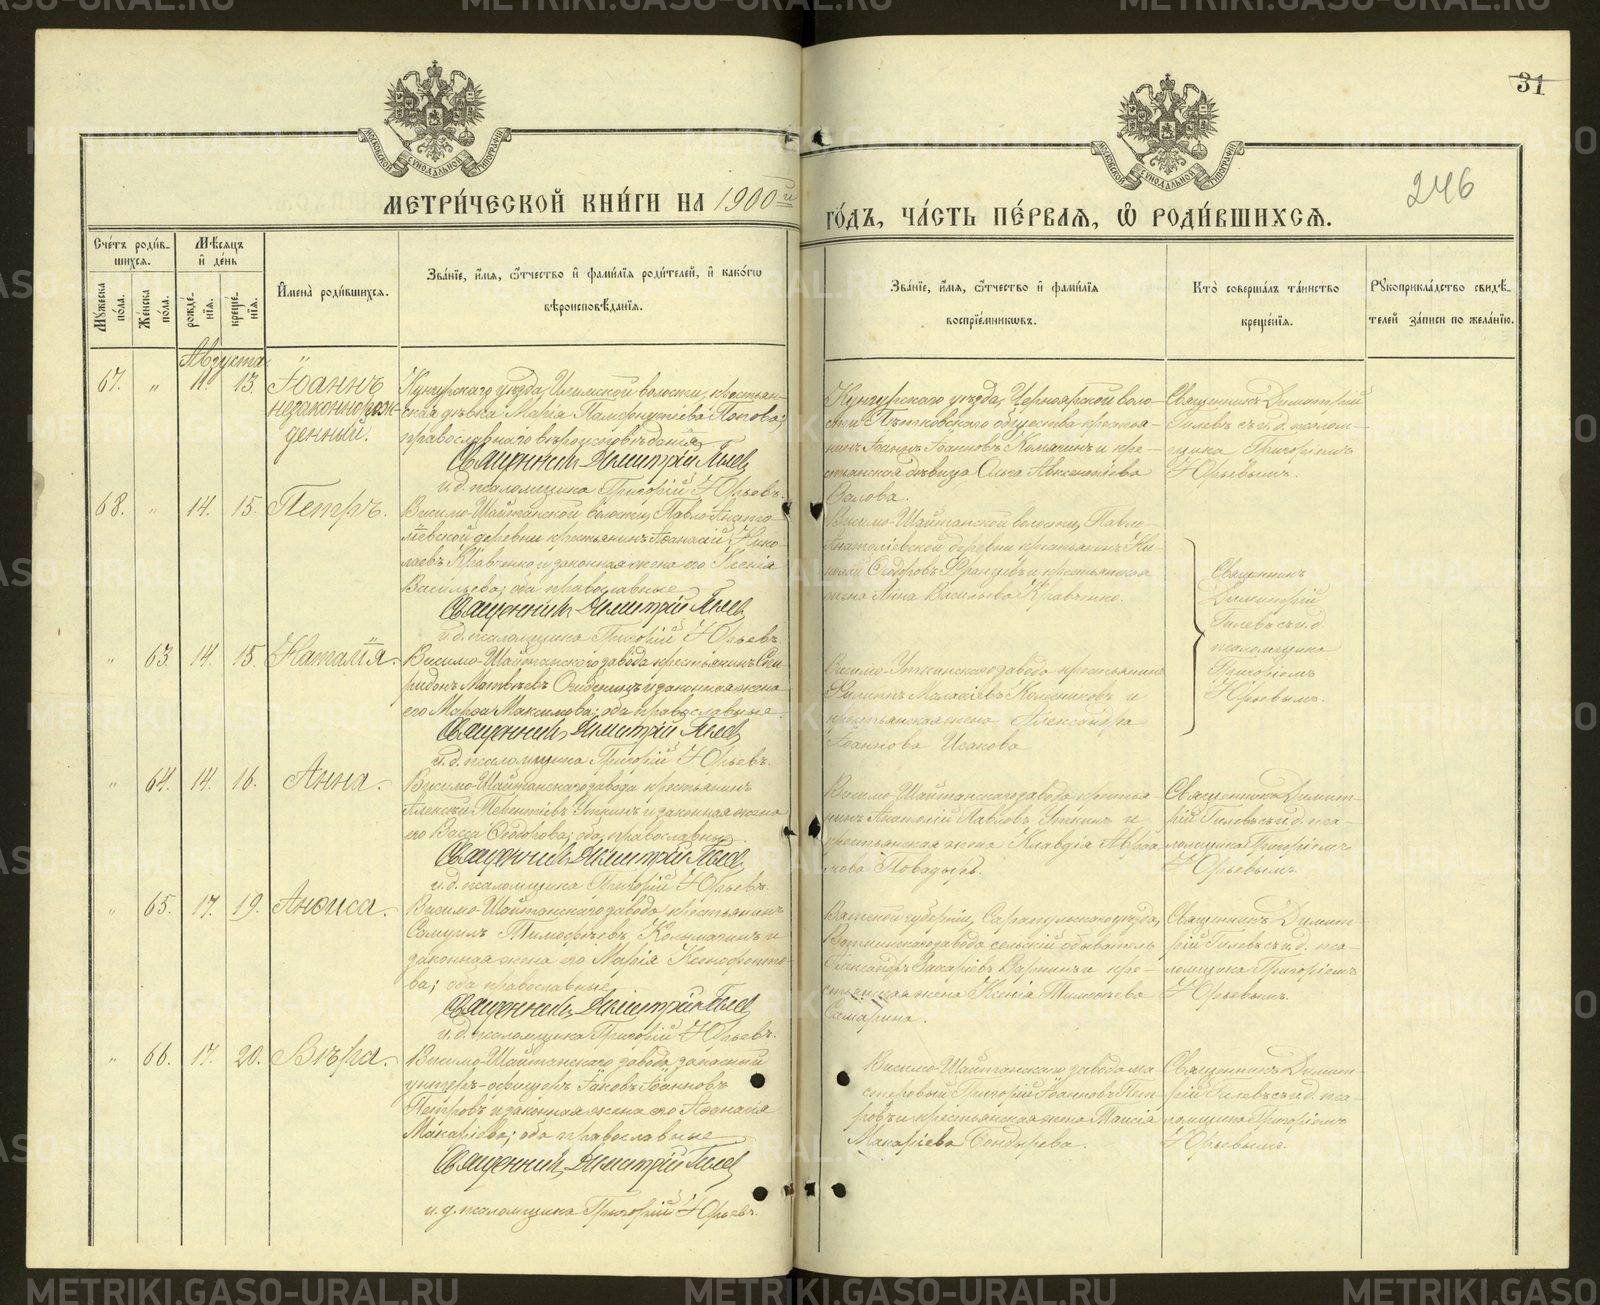 31
246
МОСКОВСКОЙ СѴНОДАЛЬНОЙ ТИПОГРАФІИ
МОСКОВСКОЙ СѴНОДАЛЬНОЙ ТИПОГРАФІИ
МЕТРИ́ЧЕСКОЙ КНИ́ГИ НА 1900й
ГО́ДЪ, ЧА́СТЬ ПЕ́РВАЯ, Ѽ РОДИ́ВШИХСЯ.
Сче́тъ роди́в-
шихся.
Мѣ́сяцъ
и҆ де́нь
Мꙋ́жеска по́ла.
Же́нска по́ла.
рожде́-
нїя.
креще́-
нїя.
И҆мена̀ роди́вшихся.
Зва́нїе, и҆́мя, ѻ҆́тчество и҆ фами́лїя роди́телей, и҆ како́гѡ
вѣроисповѣ́данїя.
Зва́нїе, и҆́мя, ѻ҆́тчество и҆ фами́лїя
воспрїе́мникѡвъ.
Кто̀ соверша́лъ та́инство
креще́нїя.
Рꙋкоприкла́дство свидѣ́-
телей за́писи по жела́нїю.
Августа
67. " 11. 13. Іоаннъ
незаконнорож-
денный.
Кунгурскаго уѣзда, волости, крестьян-
ская дѣвка Марія Попова;
православнаго вѣроисповѣданія
Священникъ Димитрій Гилев
и.д. псаломщика Григорій Юрьевъ.
Кунгурскаго уѣзда, Черноярской воло-
сти общества крестья-
нинъ Іоаннъ Іоанновъ и кре-
стьянская дѣвица Ольга Авксентіева
Валова.
Священникъ Димитрій
Гилевъ съ и.д. псалом-
щика Григоріемъ
Юрьевымъ.
68. " 14. 15. Петръ.
Висимо-Шайтанской волости, Павло-Анато-
лievской деревни крестьянинъ Аѳанасій Нико-
лаевъ Кравченко и законная жена его Ксенія
Васильева; оба православные
Священникъ Димитрій Гилев
и.д. псаломщика Григорій Юрьевъ
Висимо-Шайтанской волости, Павло-
Анатоліевской деревни крестьянинъ Ни-
колай Ѳедоровъ и крестьянская
жена Анна Васильева Кравченко.
Священникъ
Димитрій
Гилевъ съ и.д.
псаломщика
Григоріемъ
Юрьевымъ.
" 63. 14. 15. Наталія.
Висимо-Шайтанскаго завода крестьянинъ Спи-
ридонъ Матвѣевъ и законная жена
его Марѳа Максимова; оба православные.
Священникъ Димитрій Гилев
и.д. псаломщика Григорій Юрьевъ.
Висимо-Уткинскаго завода крестьянинъ
Филиппъ и
крестьянская жена Александра
Іоаннова Исакова
" 64. 14. 16. Анна.
Висимо-Шайтанскаго завода крестьянинъ
Алексѣй Уткинъ и законная жена
его Васса Ѳедорова; оба православные
Священникъ Димитрій Гилев
и.д. псаломщика Григорій Юрьевъ.
Висимо-Шайтанскаго завода крестья-
нинъ Анатолій Павловъ Уткинъ и
крестьянская жена Клавдія Авраа-
мова Поводырь.
Священникъ Димит-
рій Гилевъ съ и.д. пса-
ломщика Григоріемъ
Юрьевымъ.
" 65. 17. 19. Анѳиса.
Висимо-Шайтанскаго завода крестьянинъ
Самуилъ Тимоѳеевъ Колмагинъ и
законная жена его Марія Ксенофонто-
ва; оба православные
Священникъ Димитрій Гилев
и.д. псаломщика Григорій Юрьевъ.
Вятской губерніи, Сарапульскаго уѣзда,
Воткинскаго завода сельскій обыватель
Александръ Захаріевъ и кре-
стьянская жена Ксенія Тимоѳеева
Самарина.
Священникъ Димит-
рій Гилевъ съ и.д. пса-
ломщика Григоріемъ
Юрьевымъ.
" 66. 17. 20. Вѣра.
Висимо-Шайтанскаго завода запасный
унтеръ-офицеръ Іаковъ Іоанновъ
Петровъ и законная жена его Аѳанасія
Макаріева; оба православные
Священникъ Димитрій Гилев
и.д. псаломщика Григорій Юрьевъ.
Висимо-Шайтанскаго завода ма-
стеровый Григорій Іоанновъ Пет-
ровъ и крестьянская жена Таисія
Макаріева Сондырева.
Священникъ Димит-
рій Гилевъ съ и.д. пса-
ломщика Григоріемъ
Юрьевымъ.
METRIKI.GASO-URAL.RU